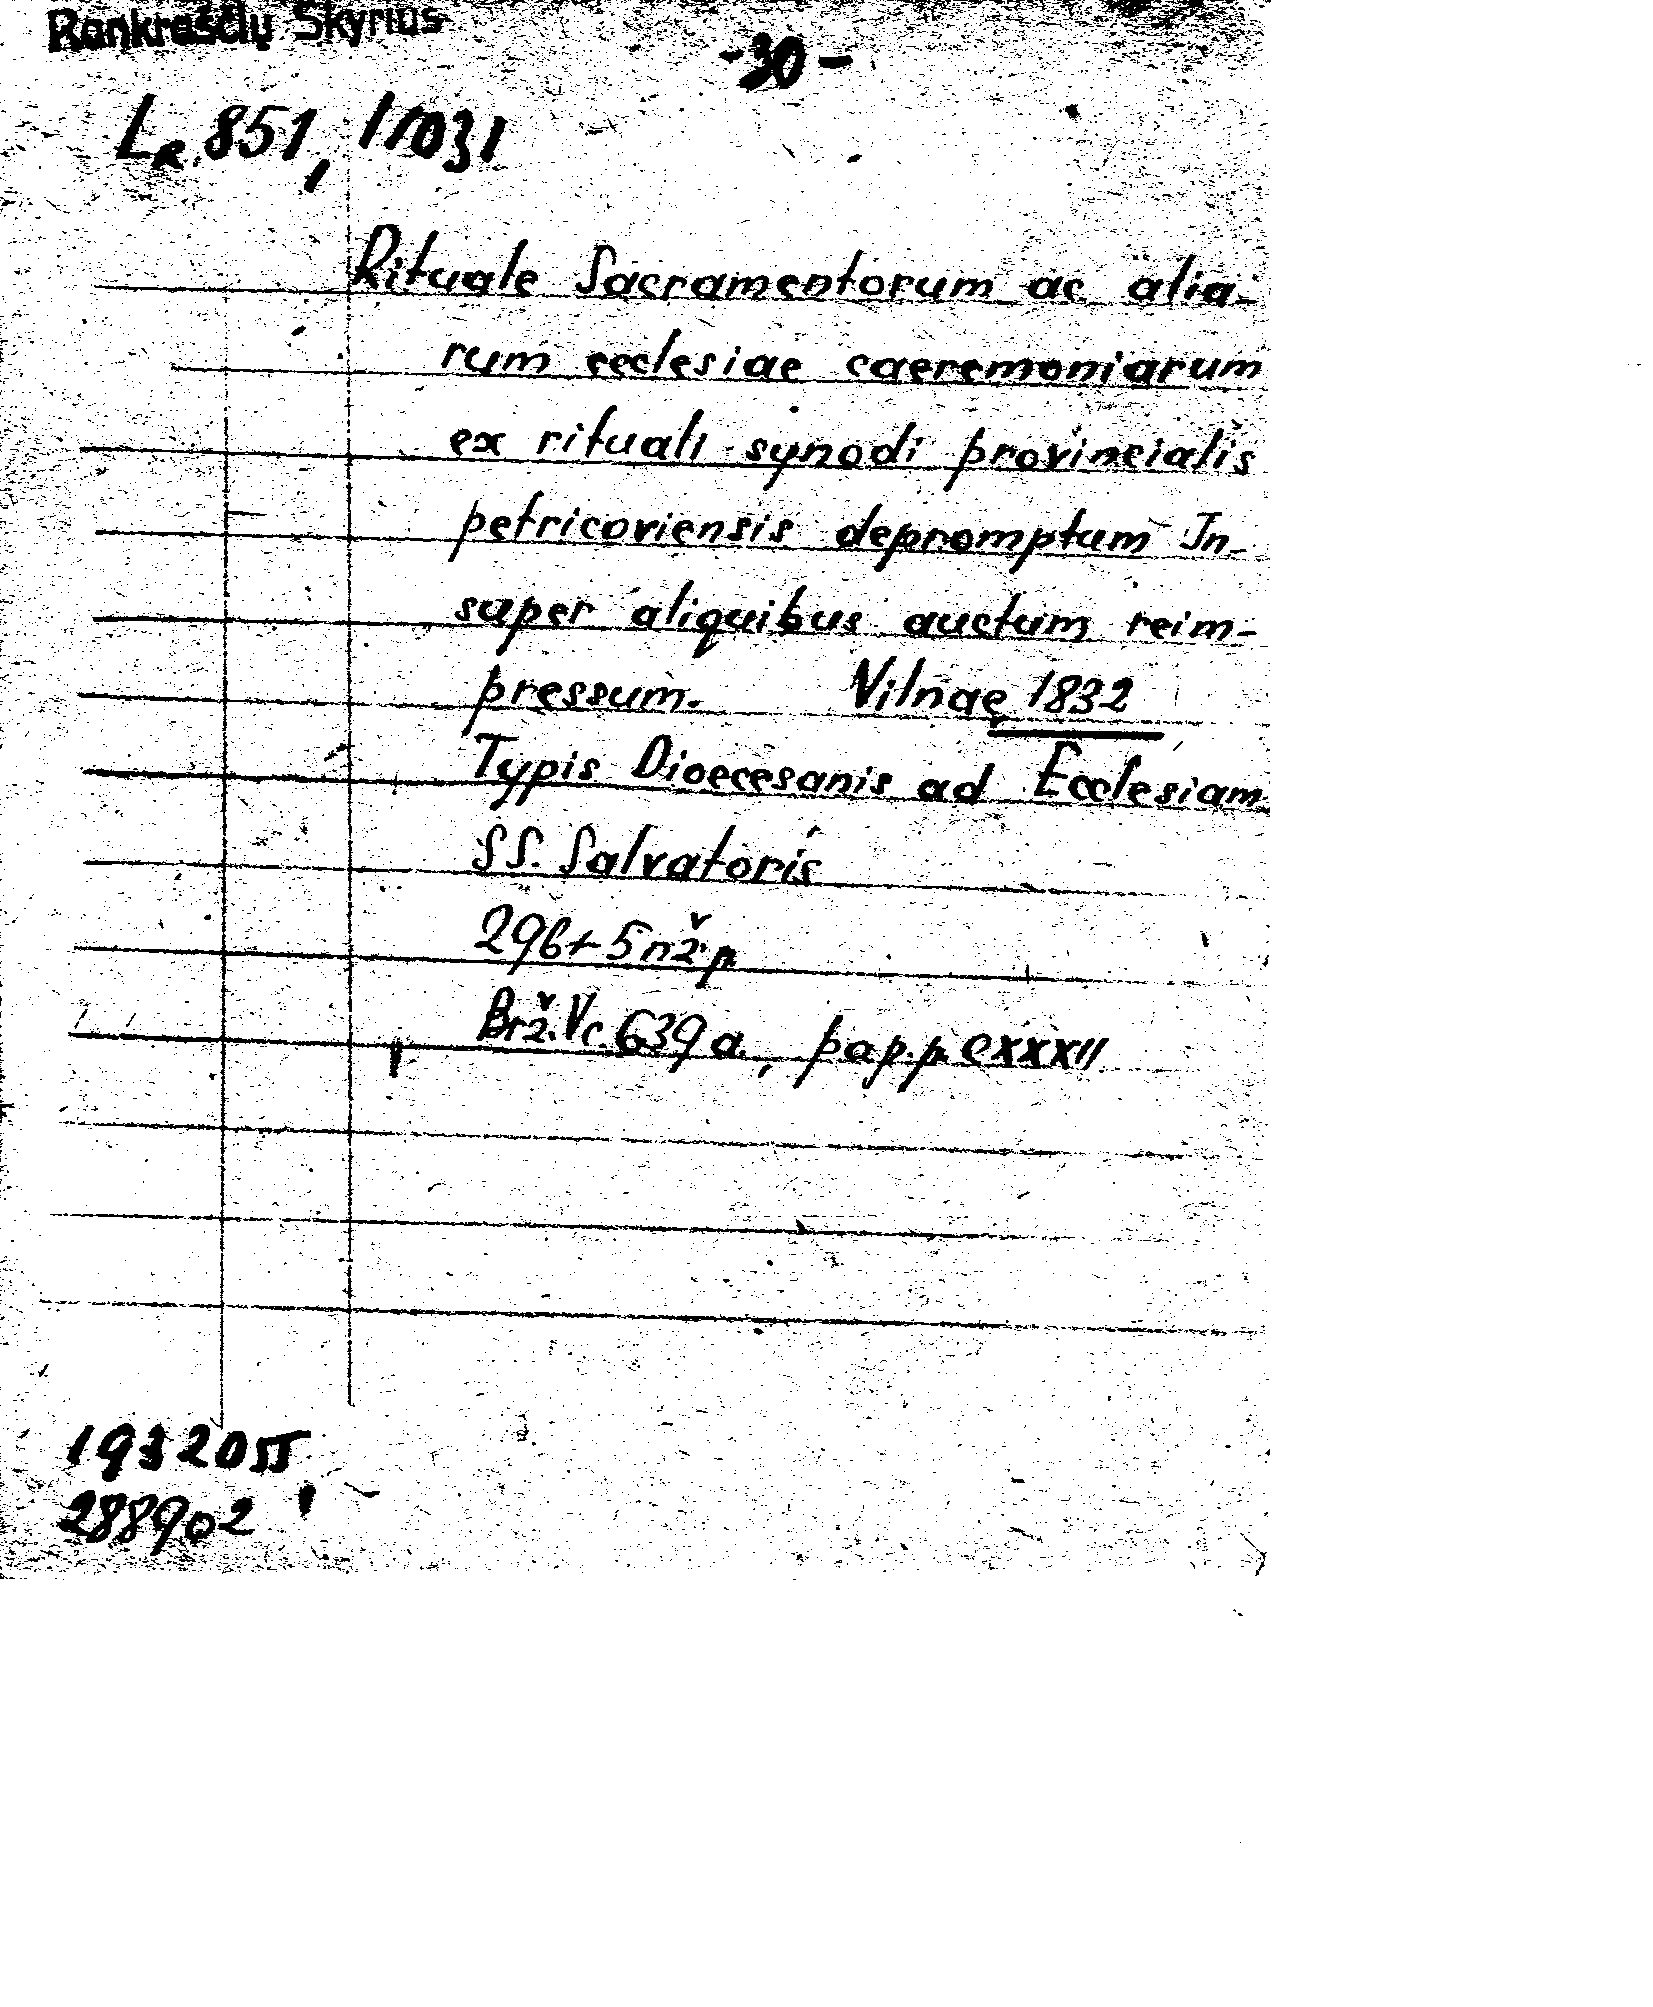 Rankraščių Skyrius
-30-
Le 851, 11031
Rituale Sacramentorum ac alia-
rum ecclesiae caeremoniarum
ex rituali synodi provincialis
petricoviensis depromptum In-
super aliquibus auctum reim-
pressum. Vilnae 1832
Typis Dioecesanis ad Ecclesiam
SS. Salvatoris
296+5nž.p.
Brž. Vc. 639a, pap.p. CXXXII
193205
288902